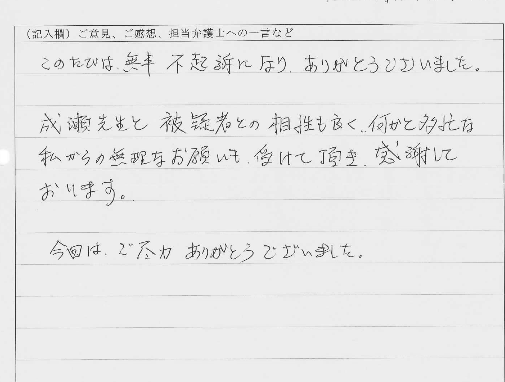 (記入欄) ご意見、ご感想、担当弁護士への一言など
このたびは、無事 不起訴になり、ありがとうございました。
成瀬先生と 被疑者との 相性も良く、何かと多忙な
私からの無理なお願いも、受けて頂き、感謝して
おります。
今回は、ご尽力 ありがとうございました。